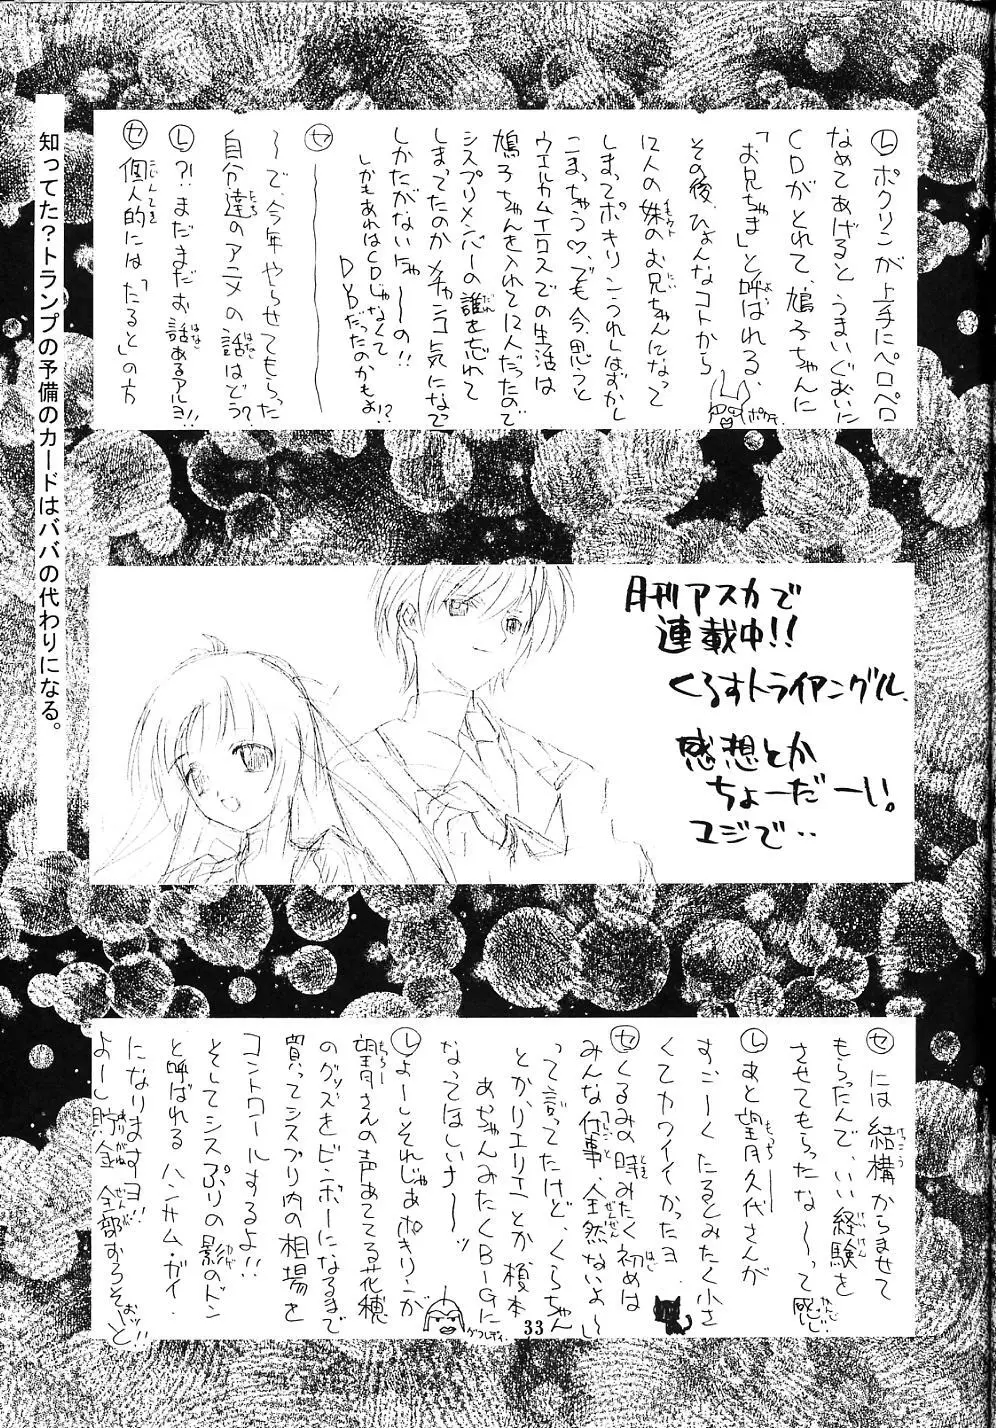 Ⓛポクリンが上手にペロペロ
なめてあげるとうまいぐあいに
CDがとれて、鳩子ちゃんに
「お兄ちゃま」と呼ばれる、
その後、ひょんなコトから
12人の妹のお兄ちゃんになって
しまってポキリンうれしはずかし
こまっちゃう♡、でも今、思うと
ウエルカムハウスでの生活は
鳩子ちゃんを入れて12人だったので
シスプリメンバーの誰を忘れて
しまってたのかメチャンコ気になって
しかたがないにゃ〜〜の!!
しかもあれはCDじゃなくて
DVDだったのかもよ!?
㋝
〜で、今年やらせてもらった
自分達のアニメの話はどう?
Ⓛ?!まだまだお話あるアルヨ!!
㋝個人的には「たると」の方
知ってた?トランプの予備のカードは、ババの代わりになる。
月刊アスカで
連載中!!
くろすトライアングル、
感想とか
ちょーだーい。
ユジで‥
㋝には結構からませて
もらったんで、いい経験を
させてもらったな〜って感じ
Ⓛあと望月久代さんが
すごーくたるとみたく小さ
くてカワイイかったヨ
㋝くるみの時みたく初めは
みんな仕事、全然ないよ〜
って言ってたけど、くらちゃん
とか、リエリエとか榎本
あちゃんみたくBIGに
なってほしいナ〜〜ッ
Ⓛよーしそれじゃあポキリンが
望月さんの声あててる花穂
のグッズをビンボーになるまで
買ってシスプリ内の相場を
コントロールするよ!!
そしてシスぷりの影のドン
と呼ばれるハンサム・ガイ
になりますヨ!!
よーし貯金全部おろそっと
33